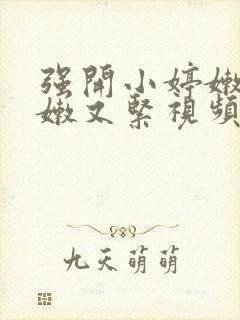 强開小婷嫩
嫩又緊視頻
九天萌萌